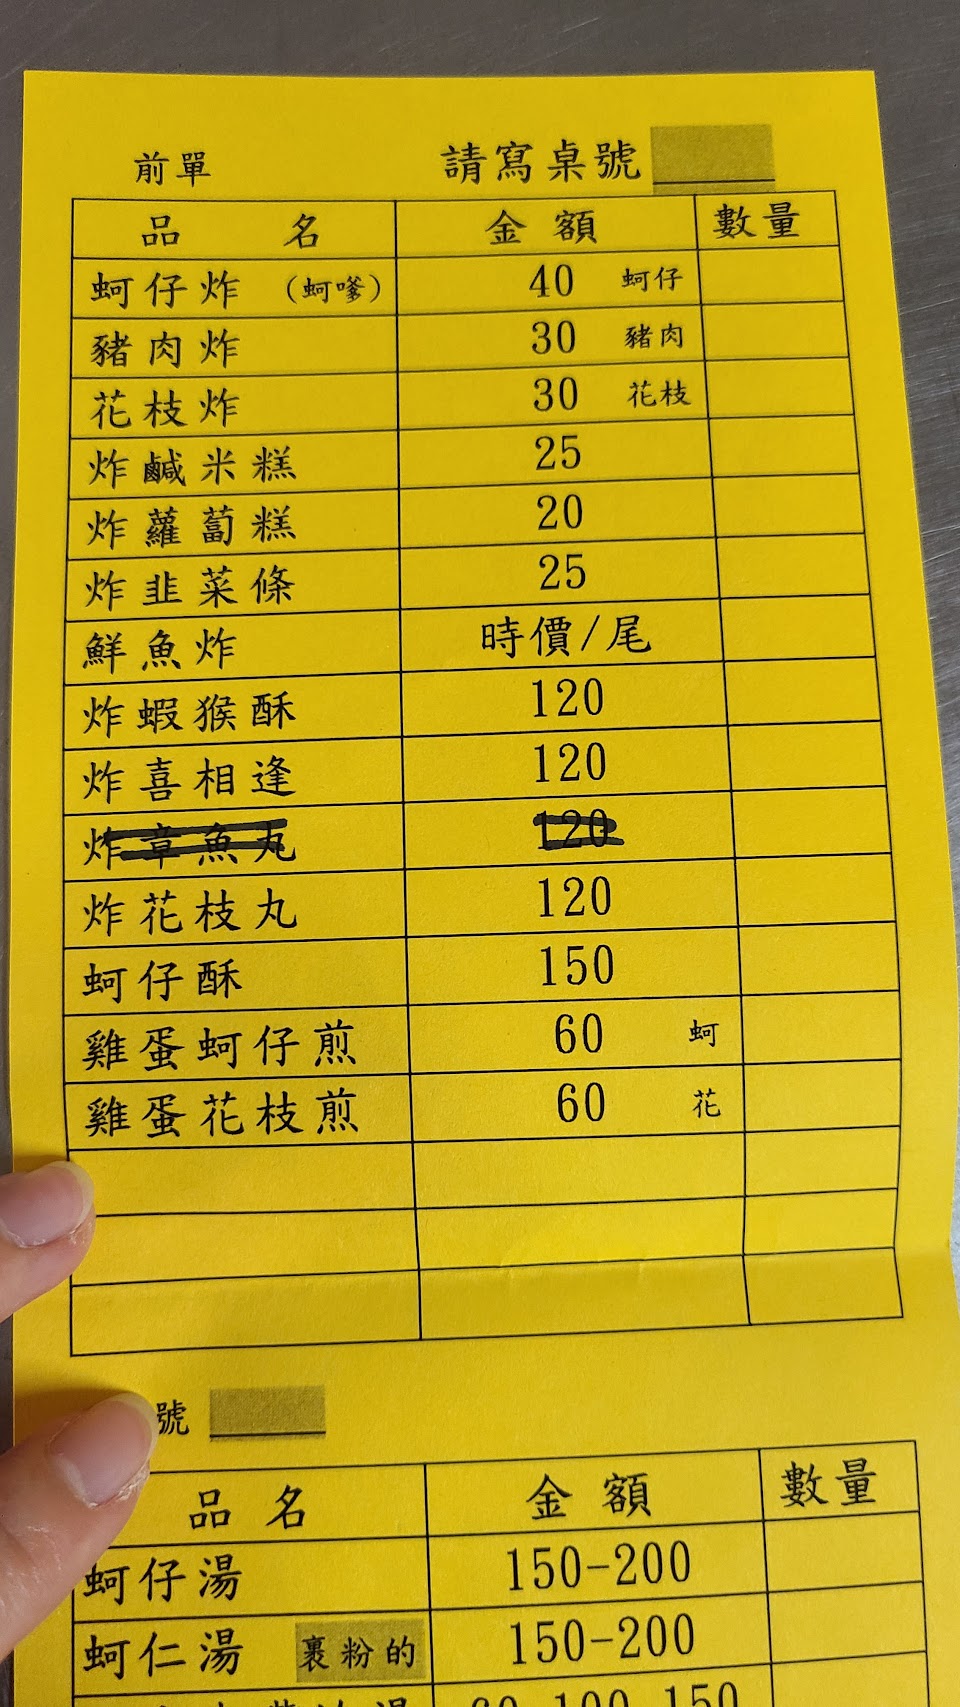 前單 請寫桌號
品名 金額 數量
蚵仔炸 (蚵嗲) 40 蚵仔
豬肉炸 30 豬肉
花枝炸 30 花枝
炸鹹米糕 25
炸蘿蔔糕 20
炸韭菜條 25
鮮魚炸 時價/尾
炸蝦猴酥 120
炸喜相逢 120
炸章魚丸 120
炸花枝丸 120
蚵仔酥 150
雞蛋蚵仔煎 60 蚵
雞蛋花枝煎 60 花
號
品名 金額 數量
蚵仔湯 150-200
蚵仁湯 裹粉的 150-200